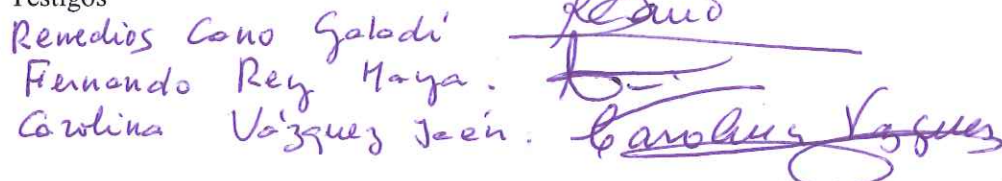 Testigos
Remedios Cano Galadí RCano
Fernando Rey Maya.
Carolina Vázquez Jaén. Carolina Vazquez